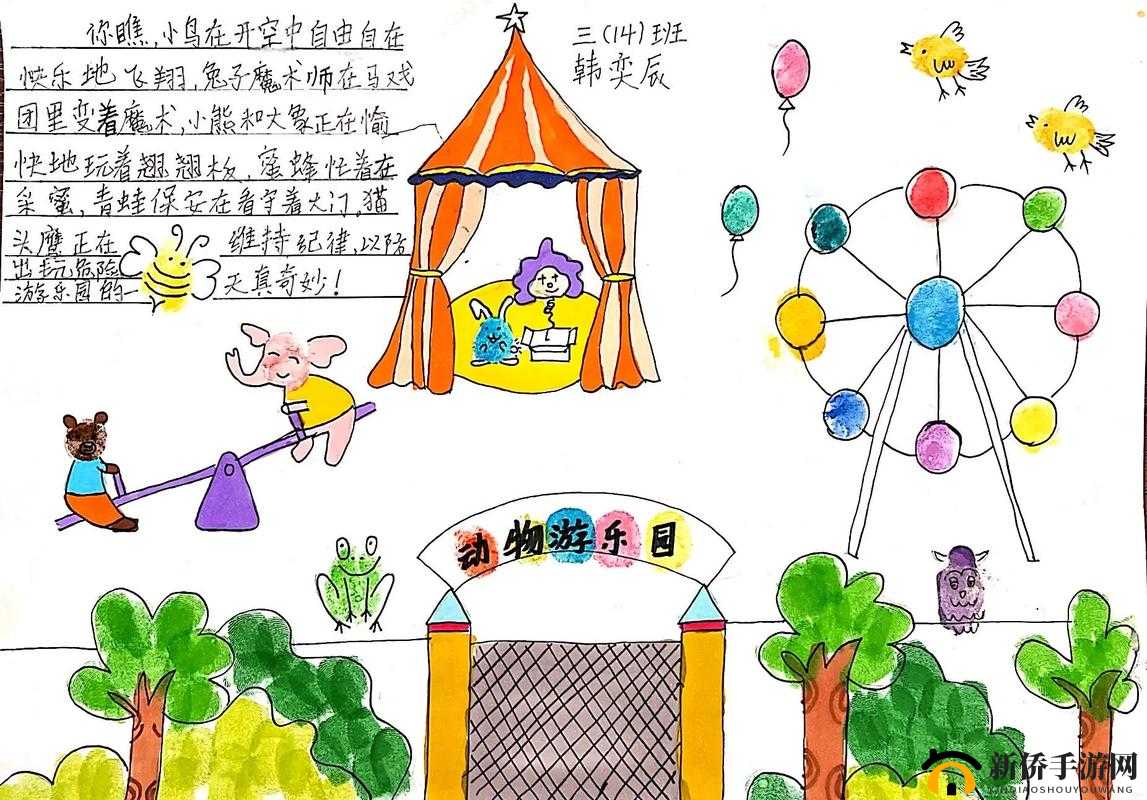 你瞧,小鸟在开空中自由自在
快乐地飞翔,兔子魔术师在马戏
团里变着魔术,小熊和大象正在愉
快地玩着翘翘板,蜜蜂忙着在
采蜜,青蛙保安在看守着大门,猫
头鹰正在维持纪律,以防
出玩危险
游乐园的一天真奇妙!
三(14)班
韩奕辰
动物游乐园
新侨手游网
XINQIAOSHOUYOUWANG